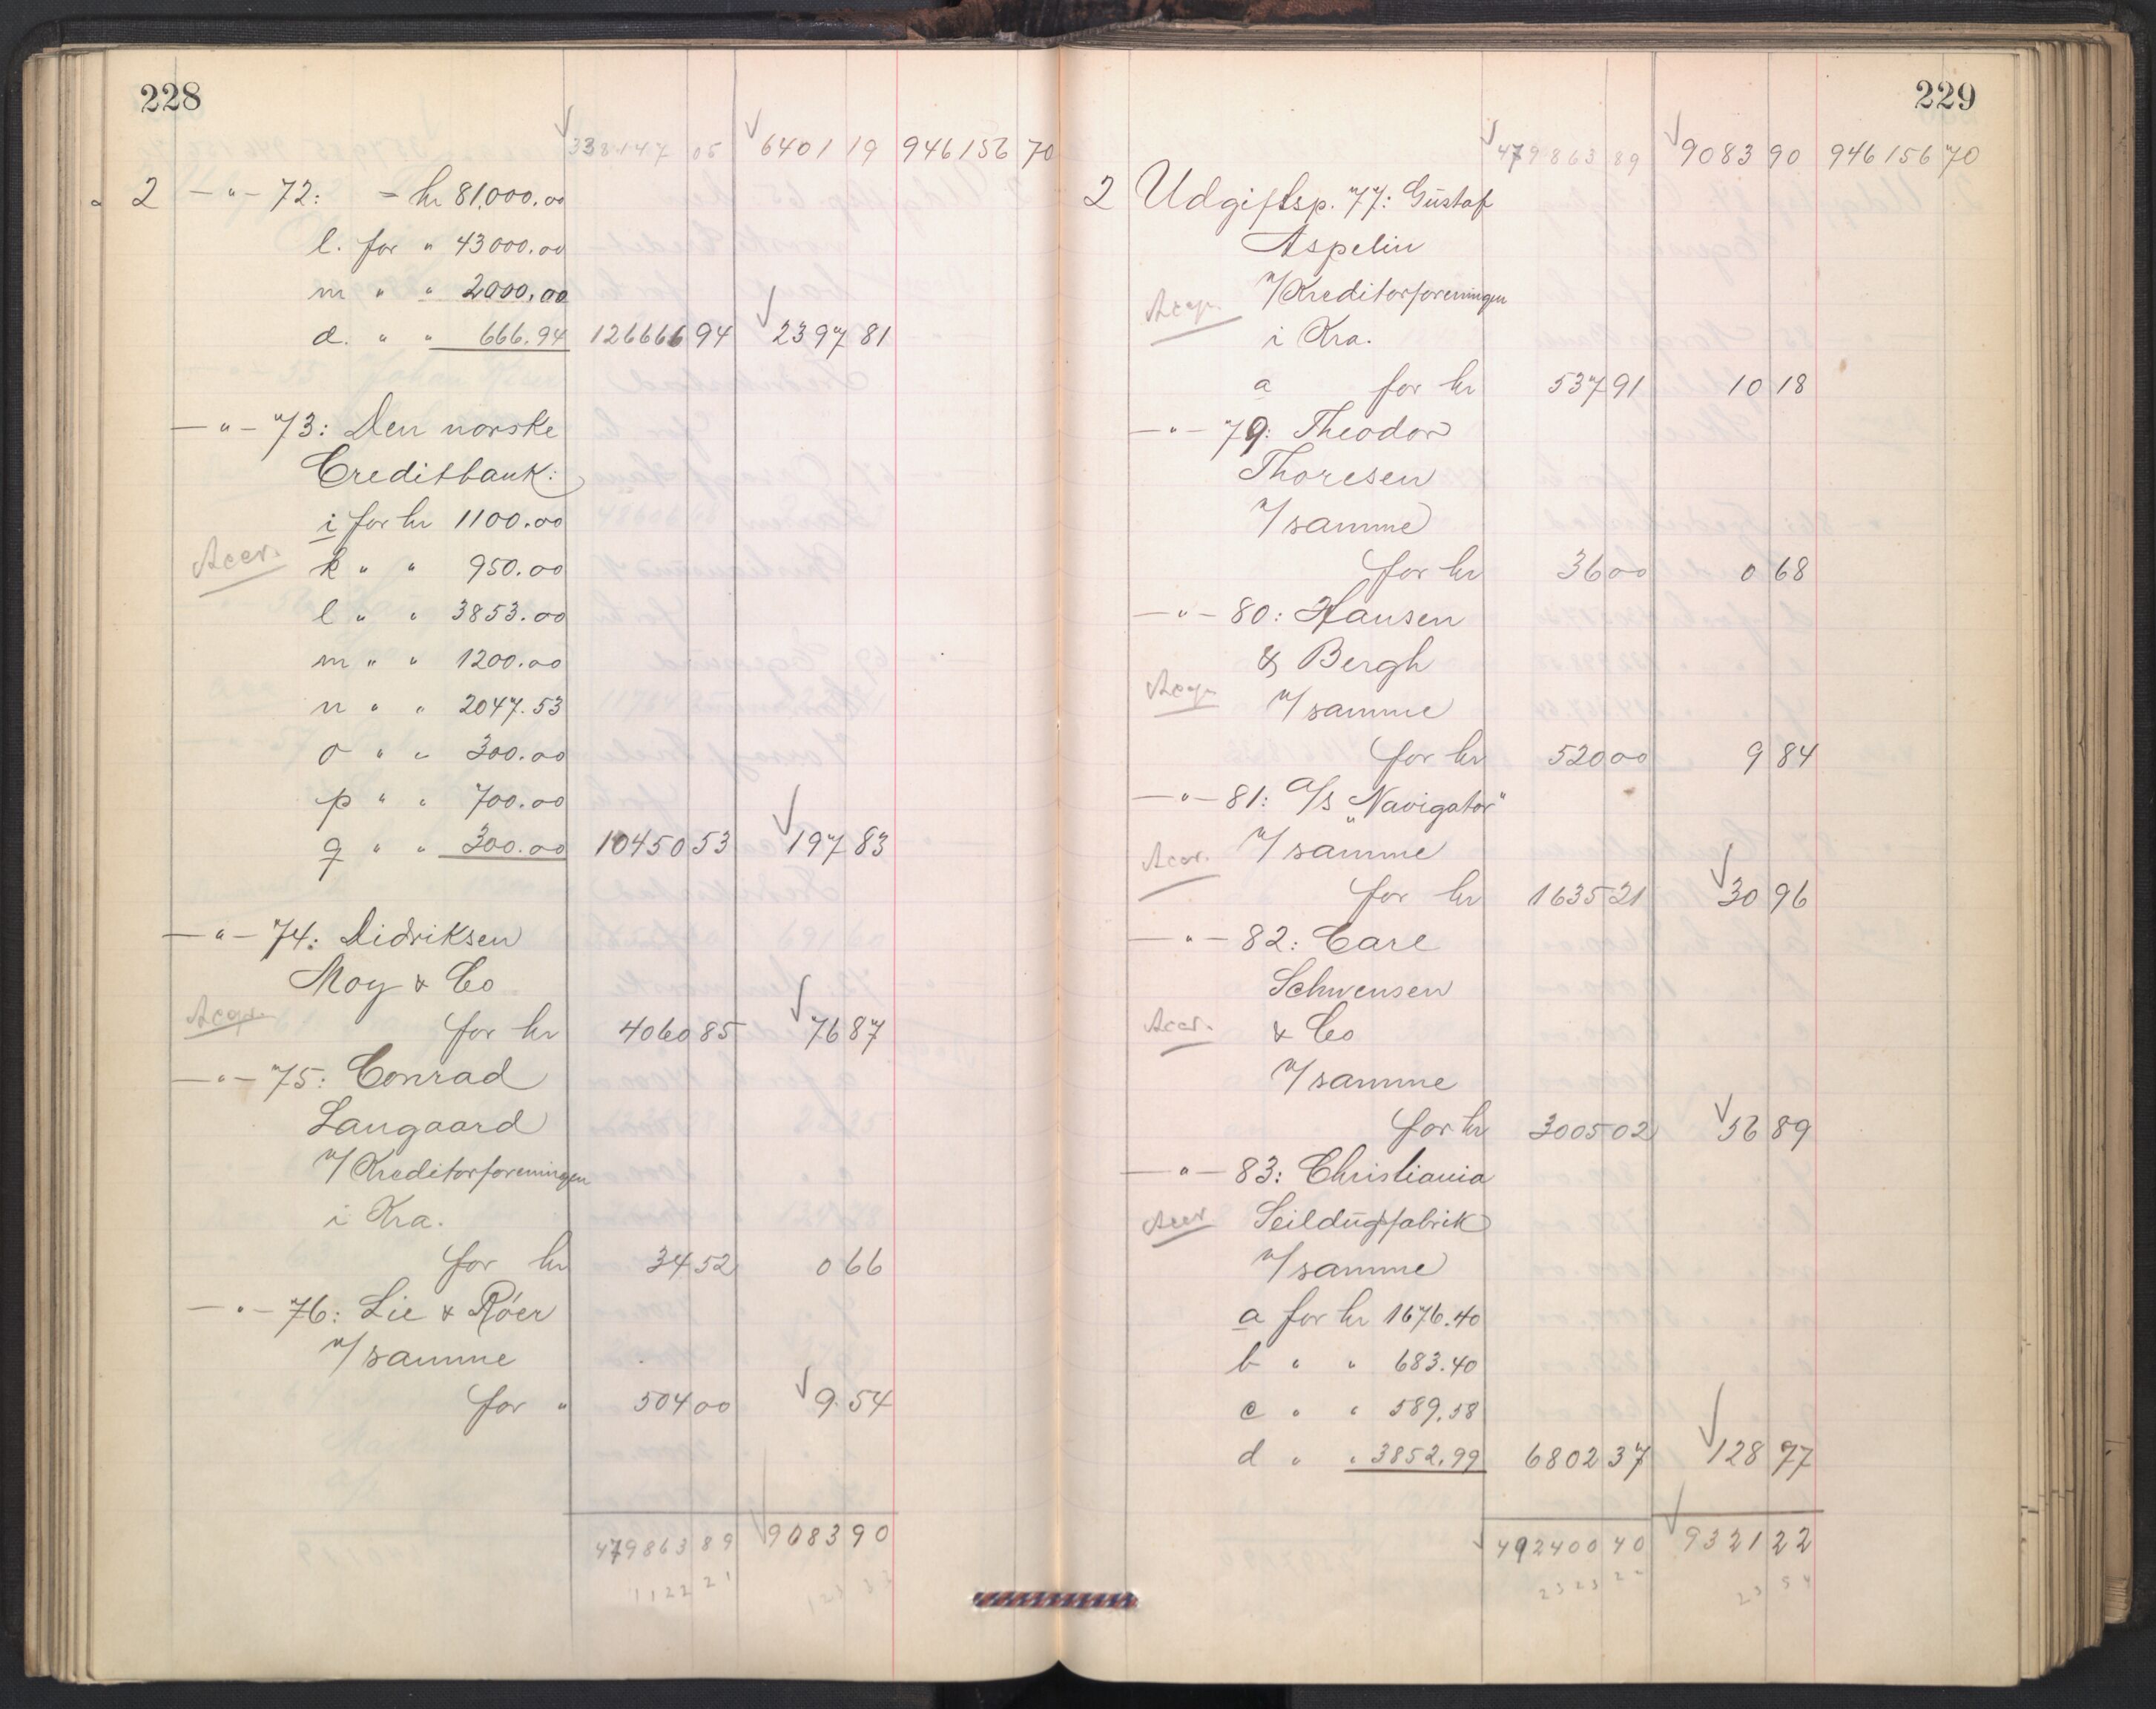 228
338147 05 6401 19 946156 70
2 —"— 72: = kr 81,000.00
l. for " 43000.00
m " " 2000,00
d. " " 666.94 126666 94 2397 81
—"— 73: Den norske
Creditbank:
i for kr 1100.00
Accr.
k " " 950.00
l " " 3853.00
m " " 1200.00
n " " 2047.53
o " " 300.00
p " " 700.00
q " " 300.00 10450 53 197 83
—"— 74: Didriksen
Moy & Co
for kr 4060 85 76 87
—"— 75: Conrad
Langaard
v/ Kreditorforeningen
i Kra.
for kr 34 52 0 66
—"— 76: Lie & Röer
v/ samme
for " 504 00 9.54
479863 89 9083 90
1122 21
229
479863 89 9083 90 946156 70
2 Udgiftsp. 77: Gustaf
Aspelin
v/ Kreditorforeningen
i Kra.
a for kr 537 91 10 18
—"— 79: Theodor
Thoresen
v/ samme
for kr 36 00 0 68
—"— 80: Hansen
& Bergh
v/ samme
for kr 520 00 9 84
—"— 81: A/s „Navigator"
v/ samme
Accr.
for kr 1635 21 30 96
—"— 82: Carl
Schwensen
Accr.
& Co
v/ samme
for kr 3005 02 56 89
—"— 83: Christiania
Accr
Seildugsfabrik
v/ samme
a for kr 1676.40
b " " 683.40
c " " 589.58
d " " 3852.99 6802 37 128 77
492400 40 9321 22